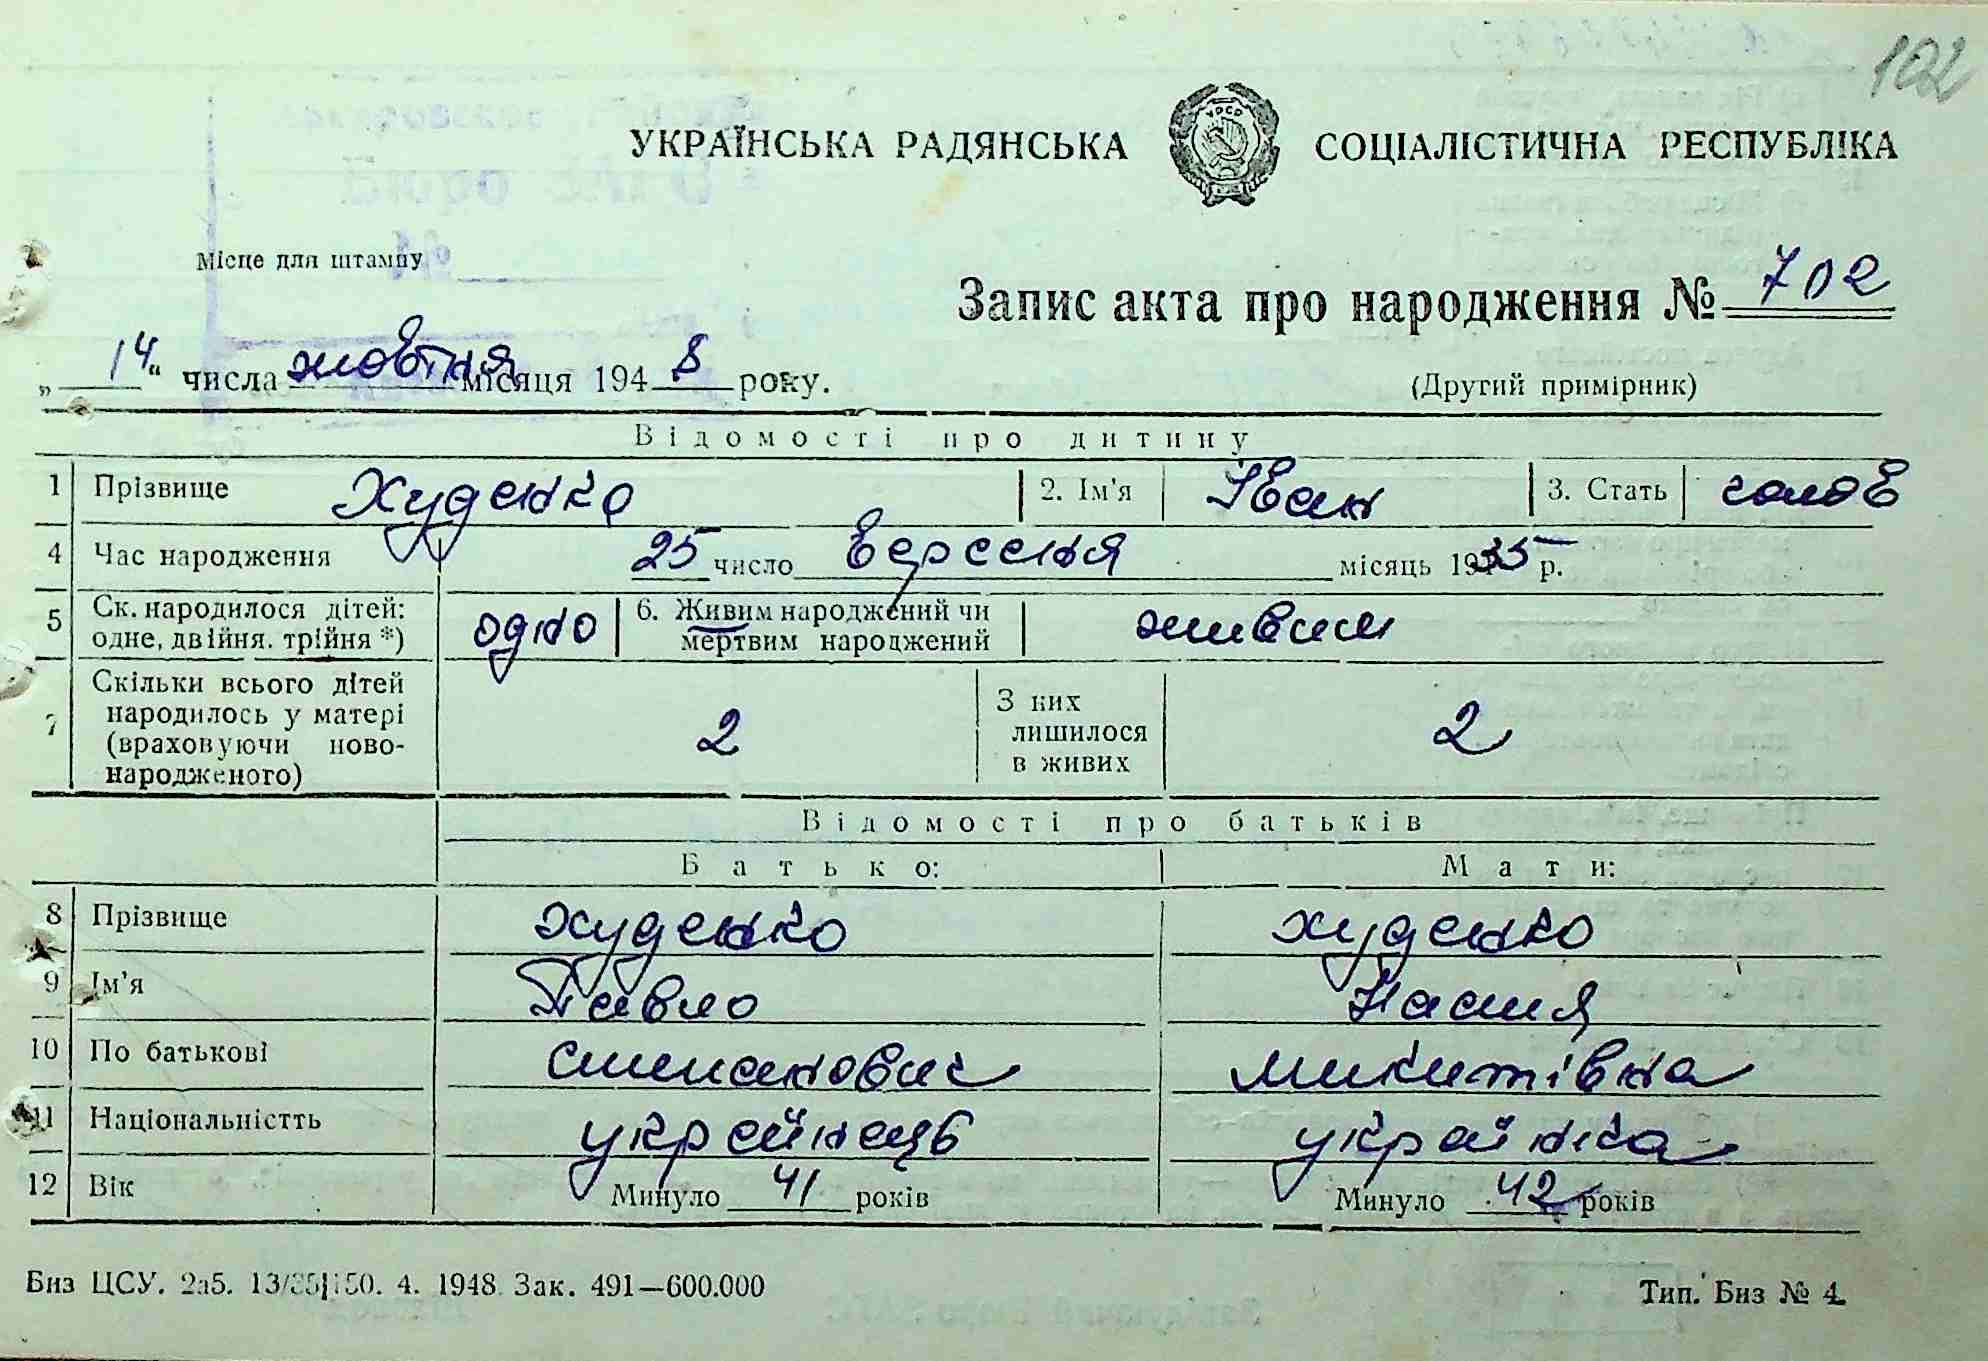 102
УКРАЇНСЬКА РАДЯНСЬКА СОЦІАЛІСТИЧНА РЕСПУБЛІКА
УРСР
Місце для штампу
Запис акта про народження № 702
„ 14 “ числа жовтня місяця 1948 року.
(Другий примірник)
Відомості про дитину
1 Прізвище Худенко 2. Ім'я Іван 3. Стать чолов
4 Час народження 25 число вересня місяць 1935 р.
5 Ск. народилося дітей: одно 6. Живим народжений чи живим
одне, двійня. трійня *) мертвим народжений
7 Скільки всього дітей народилось у матері (враховуючи ново-народженого) 2 З них лишилося в живих 2
Відомості про батьків
Батько: Мати:
8 Прізвище Худенко Худенко
9 Ім'я Павло Настя
10 По батькові Степанович Микитівна
11 Національністть українець українка
12 Вік Минуло 41 років Минуло 42 років
Биз ЦСУ. 2а5. 13/35 150. 4. 1948 Зак. 491—600.000
Тип. Биз № 4.